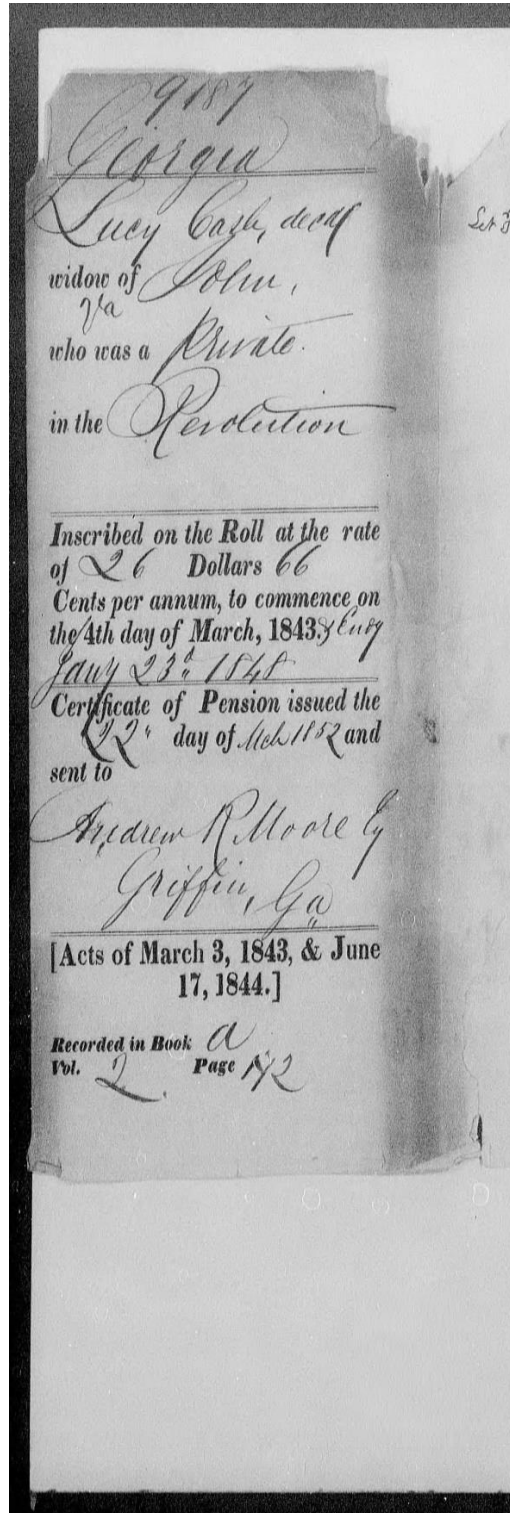 9187
Georgia
Lucy Cash, decd
widow of John,
Va
who was a Private.
in the Revolution
Inscribed on the Roll at the rate
of 26 Dollars 66
Cents per annum, to commence on
the 4th day of March, 1843. & Endg
Jany 23d 1848
Certificate of Pension issued the
22d day of Mch 1852 and
sent to
Andrew R Moore
Griffin, Ga
[Acts of March 3, 1843, & June
17, 1844.]
Recorded in Book A
Vol. 2 Page 142